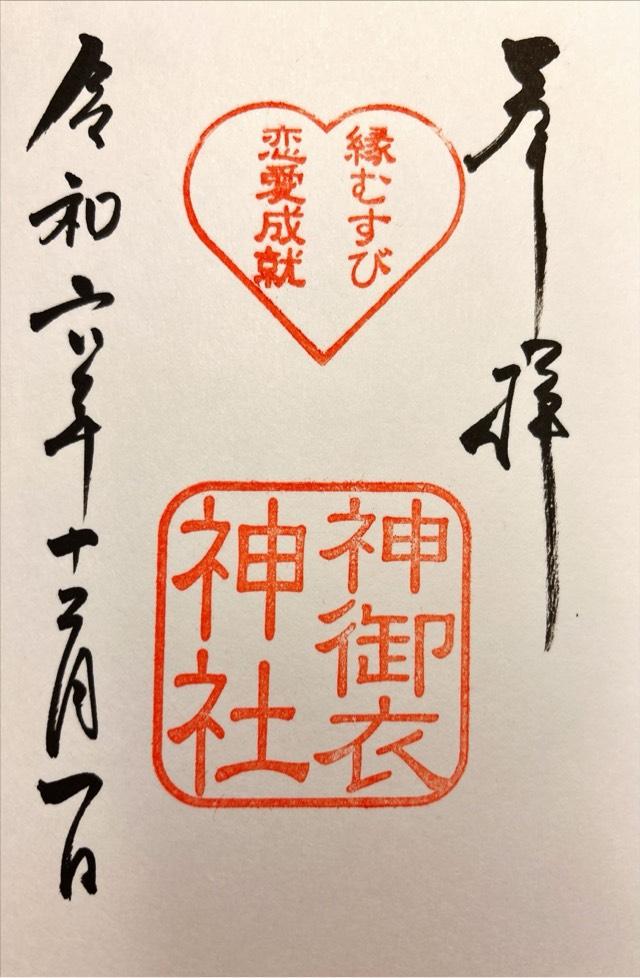 奉拝
縁むすび
恋愛成就
神御衣
神社
令和六年十二月一日